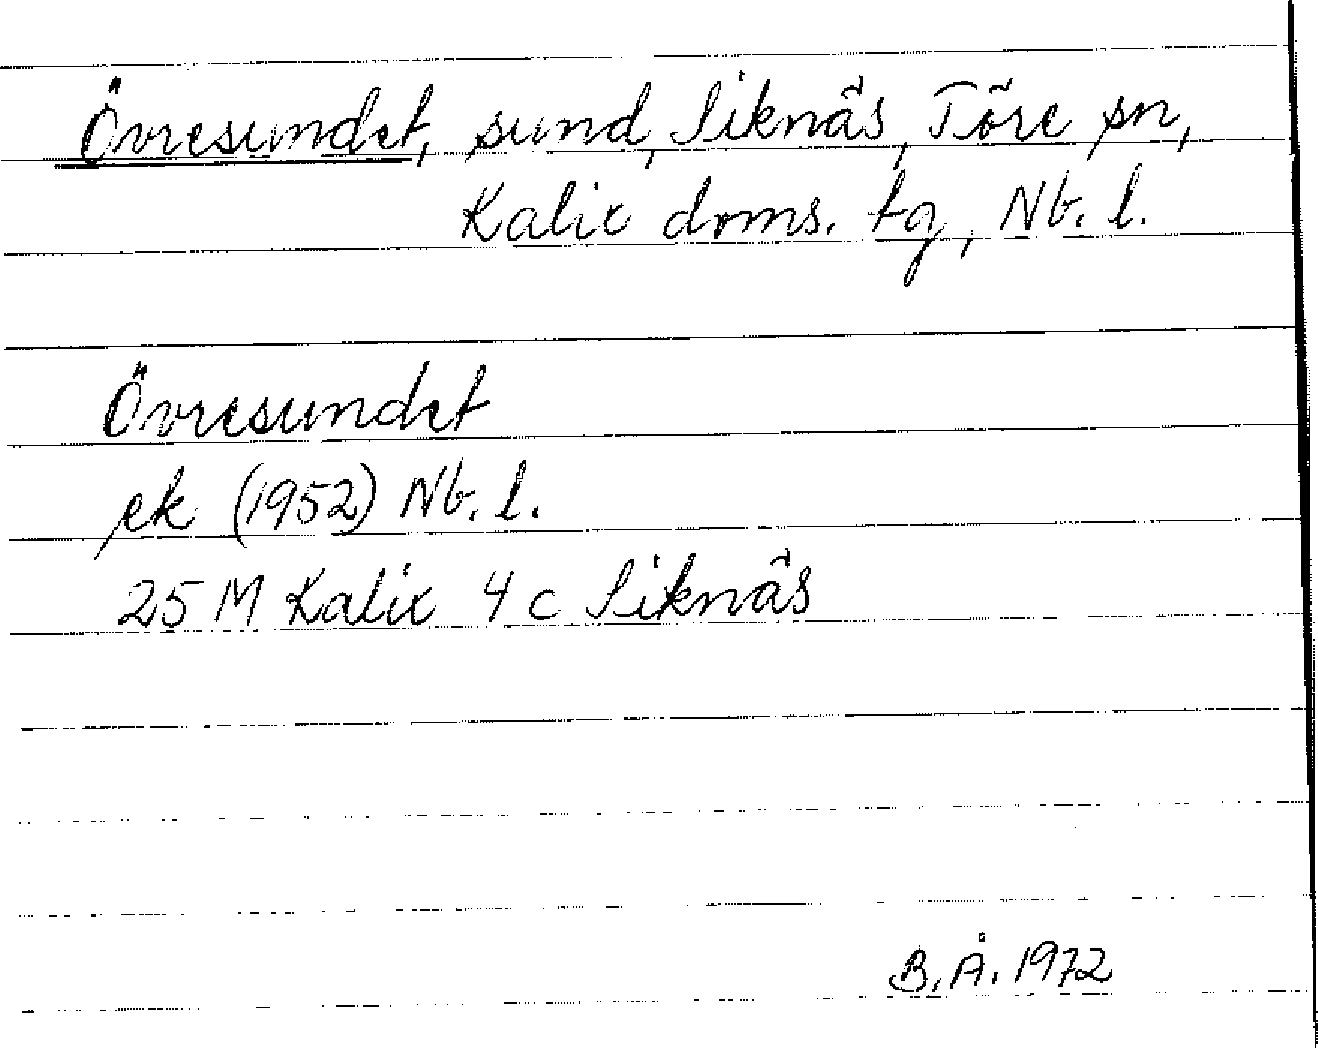 Övresundet, sund, Siknäs, Töre sn,
Kalix doms. tg, Nb. l.
Övresundet
ek (1952) Nb. l.
25 M Kalix 4 c Siknäs
B. Å. 1972